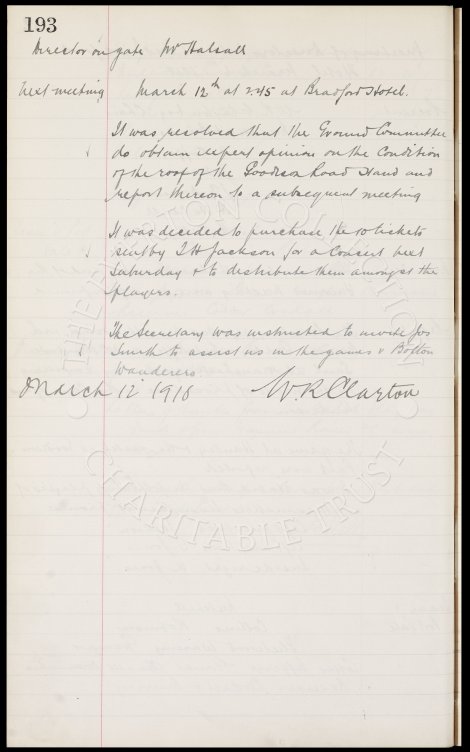 193
Director on gate Mr Halsall
Next meeting March 12th at 2.45 at Bradford Hotel.
It was resolved that the Ground Committee
do obtain expert opinion on the condition
of the roof of the Goodison Road Stand and
report thereon to a subsequent meeting
It was decided to purchase the 10 tickets
sent by J H Jackson for a Concert next
Saturday & to distribute them amongst the
players.
The Secretary was instructed to invite Jos
Smith to assist us in the games v Bolton
Wanderers.
March 12 1916 W. R. Clayton
THE EVERTON COLLECTION
CHARITABLE TRUST